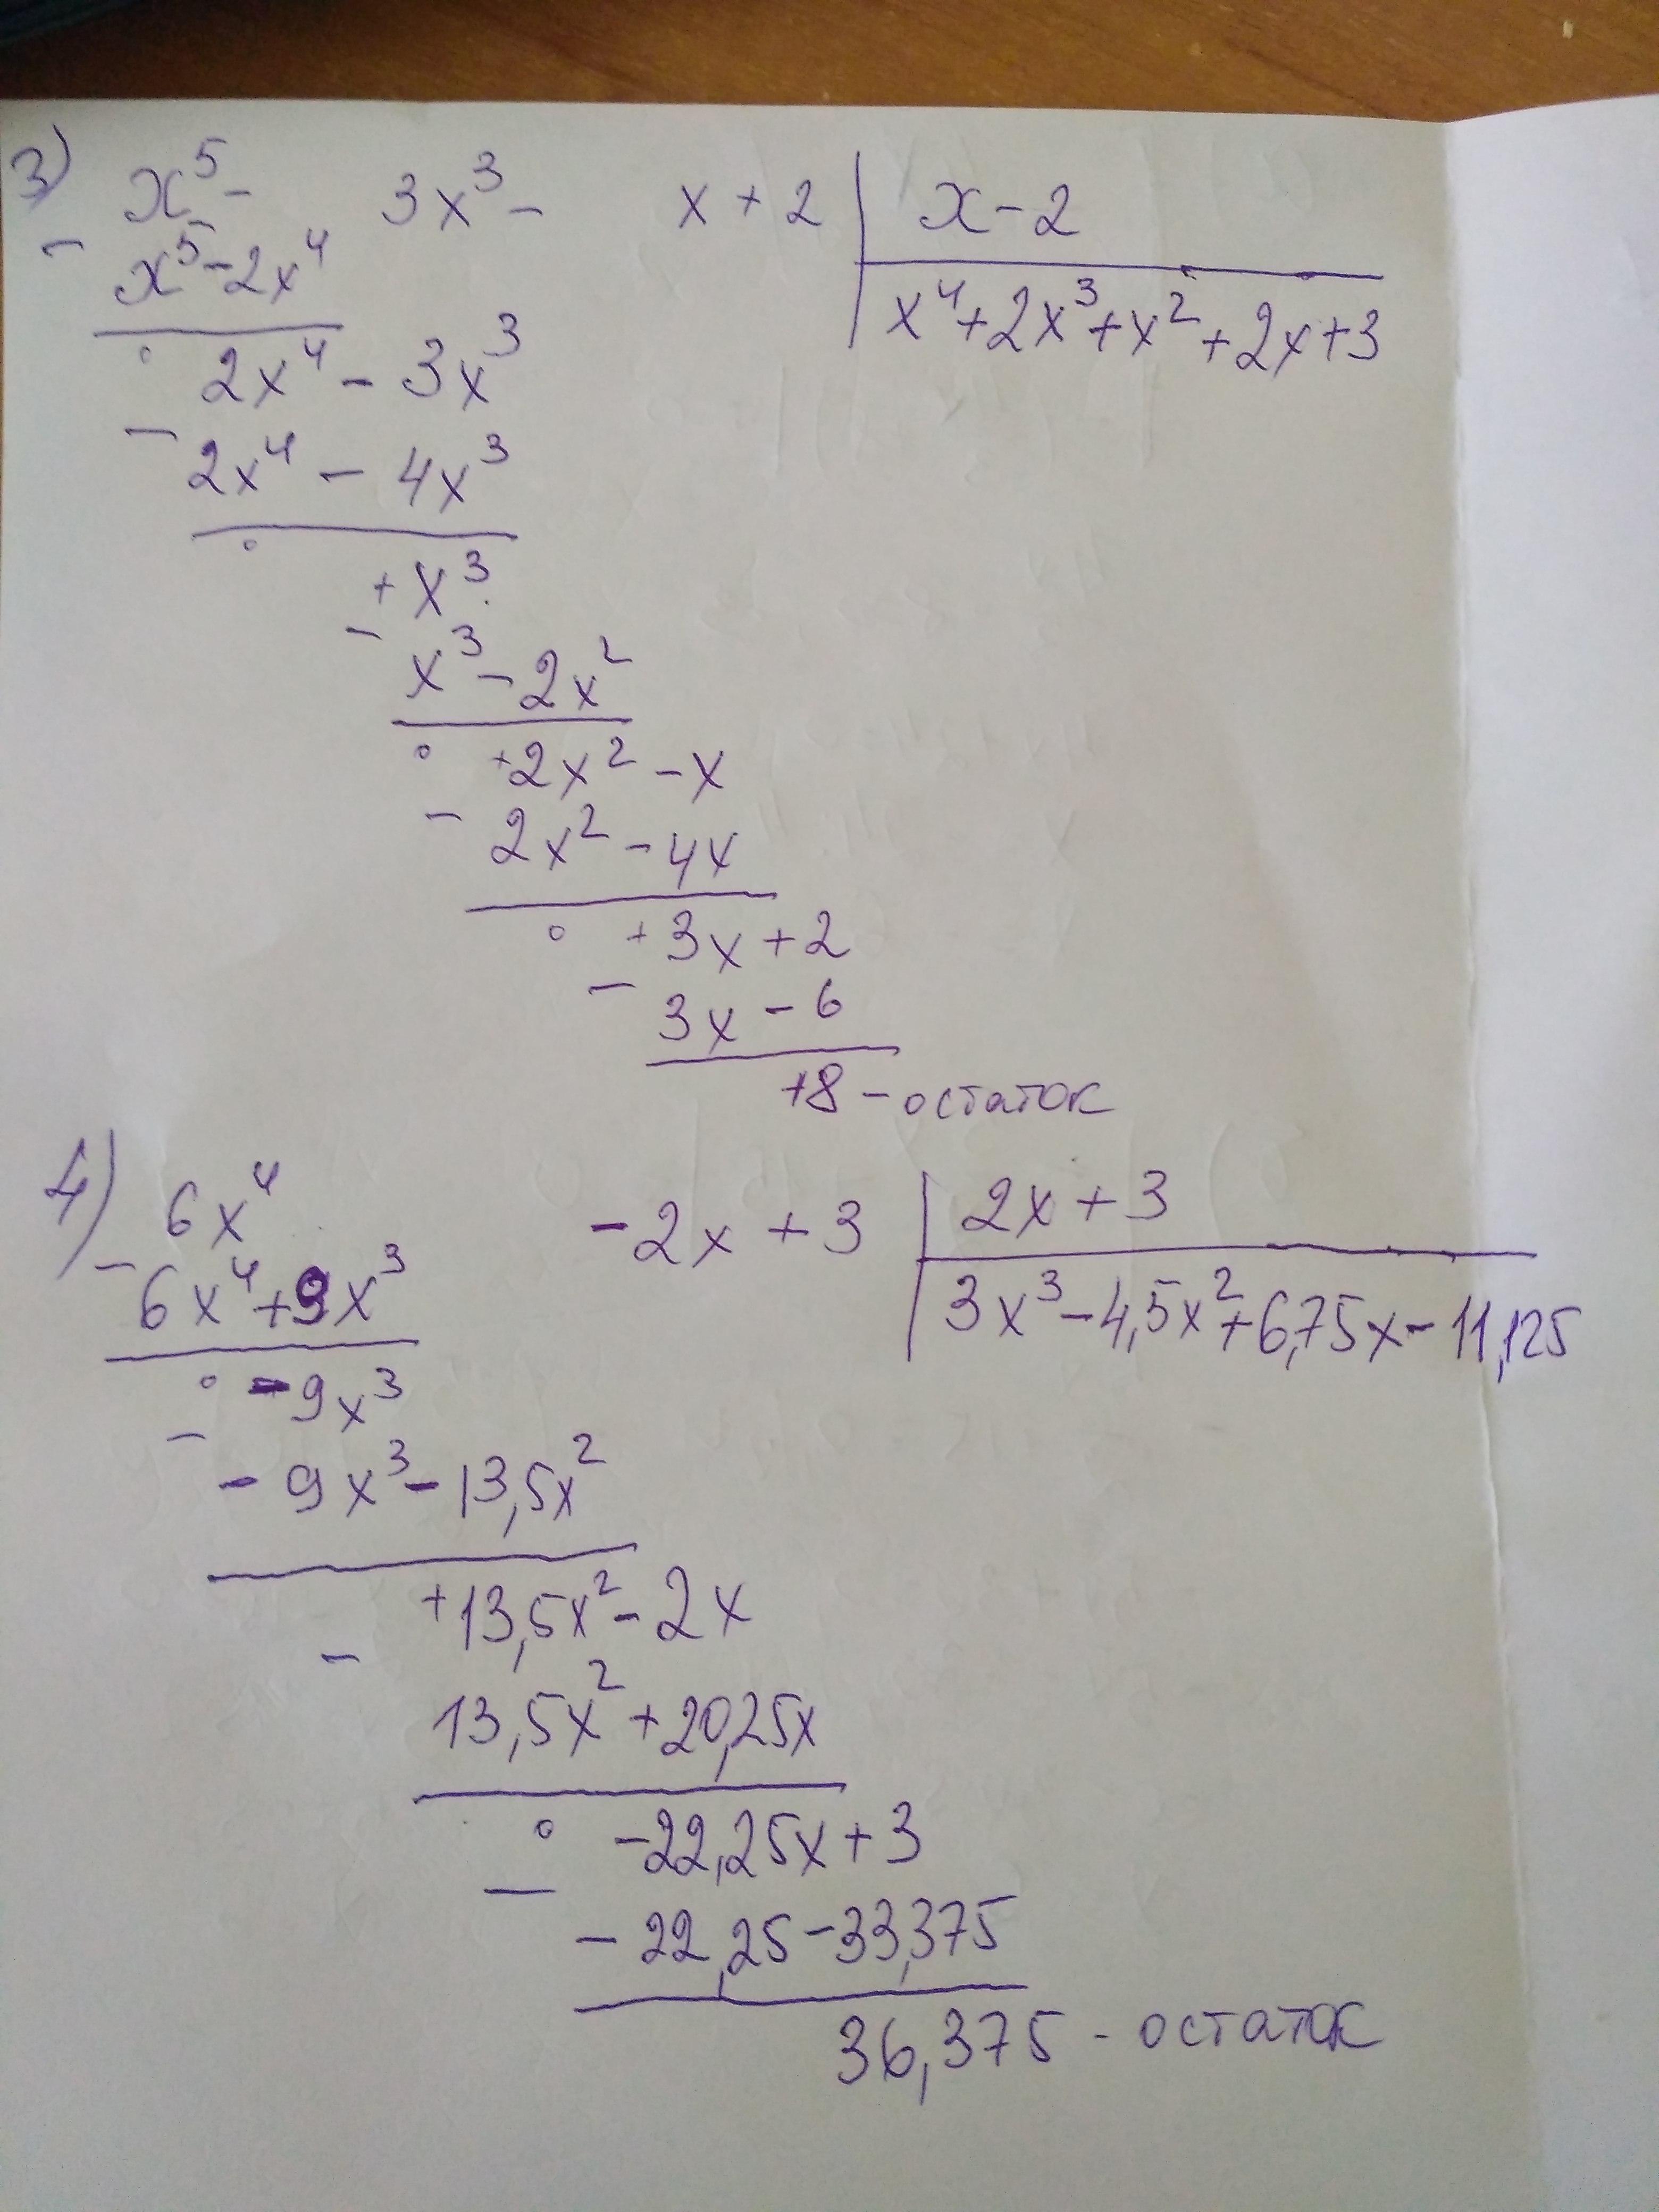 3) x⁵ - 3x³ - x + 2 | x - 2
- x⁵ - 2x⁴
x⁴ + 2x³ + x² + 2x + 3
° 2x⁴ - 3x³
- 2x⁴ - 4x³
° + x³
- x³ - 2x²
° + 2x² - x
- 2x² - 4x
° + 3x + 2
- 3x - 6
+8 - остаток
4) 6x⁴ - 2x + 3 | 2x + 3
- 6x⁴ + 9x³
3x³ - 4,5x² + 6,75x - 11,125
° - 9x³
- - 9x³ - 13,5x²
+ 13,5x² - 2x
- 13,5x² + 20,25x
° - 22,25x + 3
- - 22,25 - 33,375
36,375 - остаток